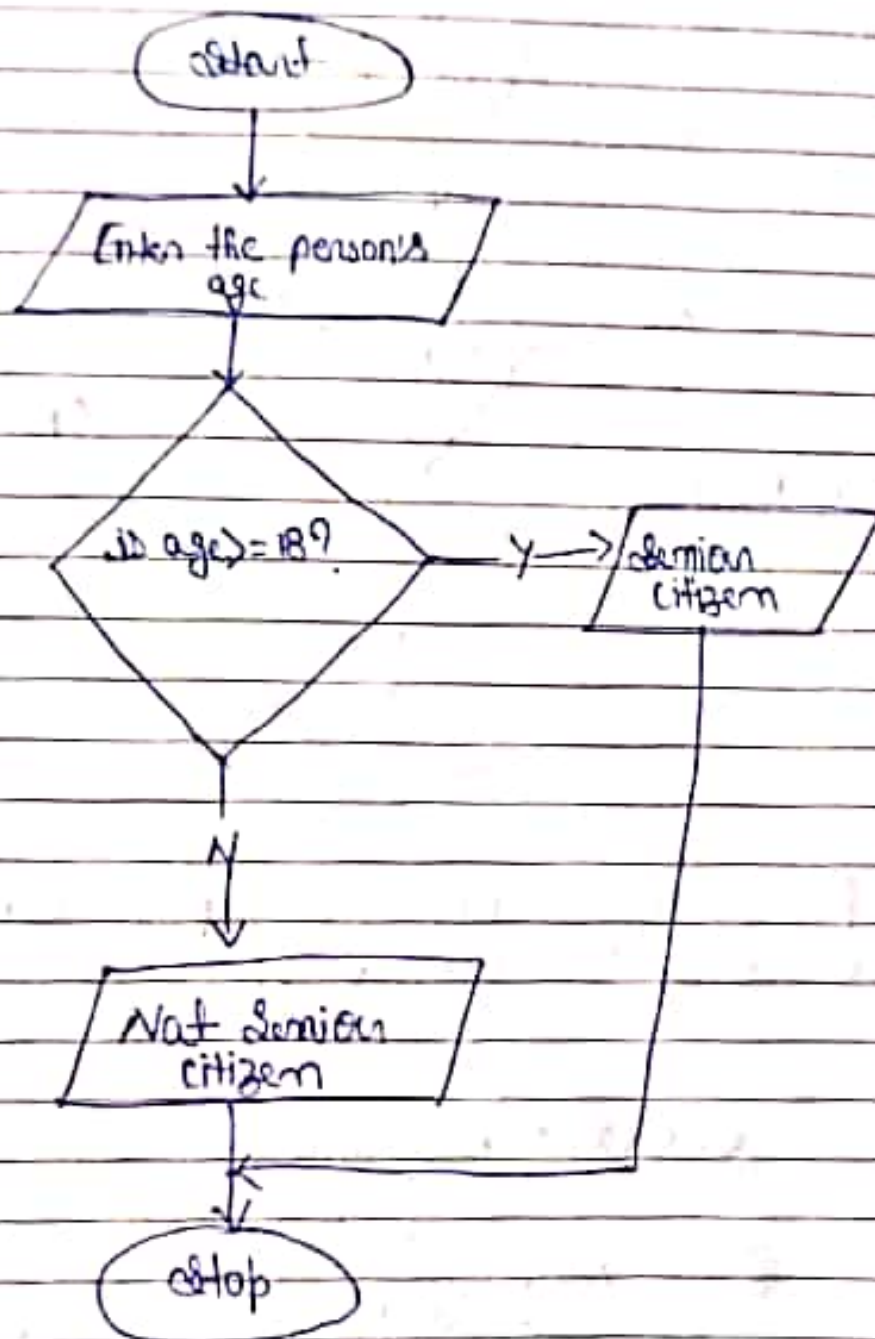 Start
Enter the person's
age
is age>=18?
Y
Senior
citizen
N
Not Senior
citizen
Stop